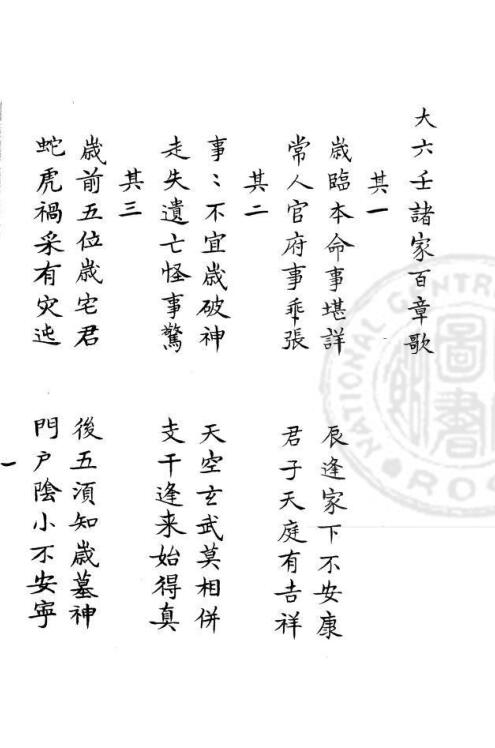 大六壬諸家百章歌
其一
歳臨本命事堪詳 辰逢家下不安康
常人官府事乖張 君子天庭有吉祥
其二
事〻不宜歳破神 天空玄武莫相併
走失遺亡怪事驚 支干逢来始得真
其三
歳前五位歳宅君 後五湏知歳墓神
蛇虎禍采有灾迍 門戶陰小不安寧
一
NATIONAL CENTR
圖書
RO